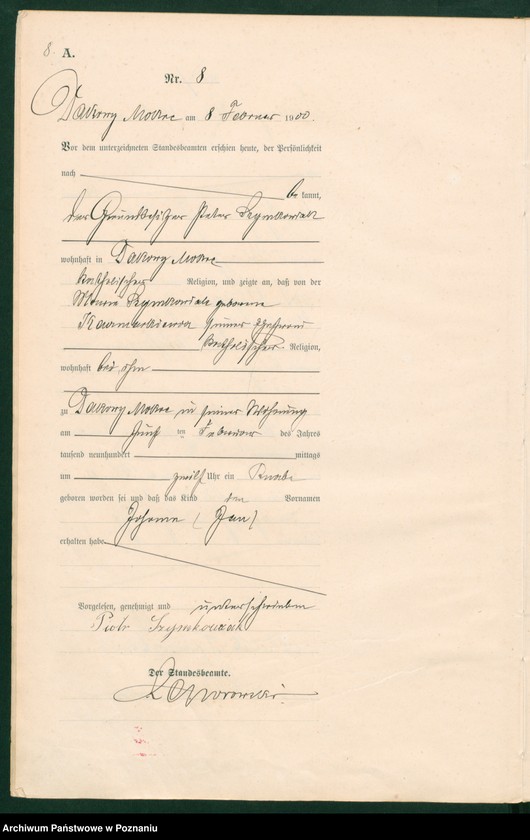 8. A.
Nr. 8
Dakowy Mokre am 8 Februar 1900.
Vor dem unterzeichneten Standesbeamten erschien heute, der Persönlichkeit
nach be kannt,
der Grundbesitzer Peter Szymkowiak
wohnhaft in Dakowy Mokre
katholischer Religion, und zeigte an, daß von der
Szymkowiak geborene
seiner Ehefrau
katholischer Religion,
wohnhaft bei ihm
zu Dakowy Mokre in seiner Wohnung
am fünf ten Februar des Jahres
tausend neunhundert mittags
um zwölf Uhr ein Knabe
geboren worden sei und daß das Kind den Vornamen
Johann (Jan)
erhalten habe
Vorgelesen, genehmigt und unterschrieben
Piotr Szymkowiak
Der Standesbeamte.
Archiwum Państwowe w Poznaniu